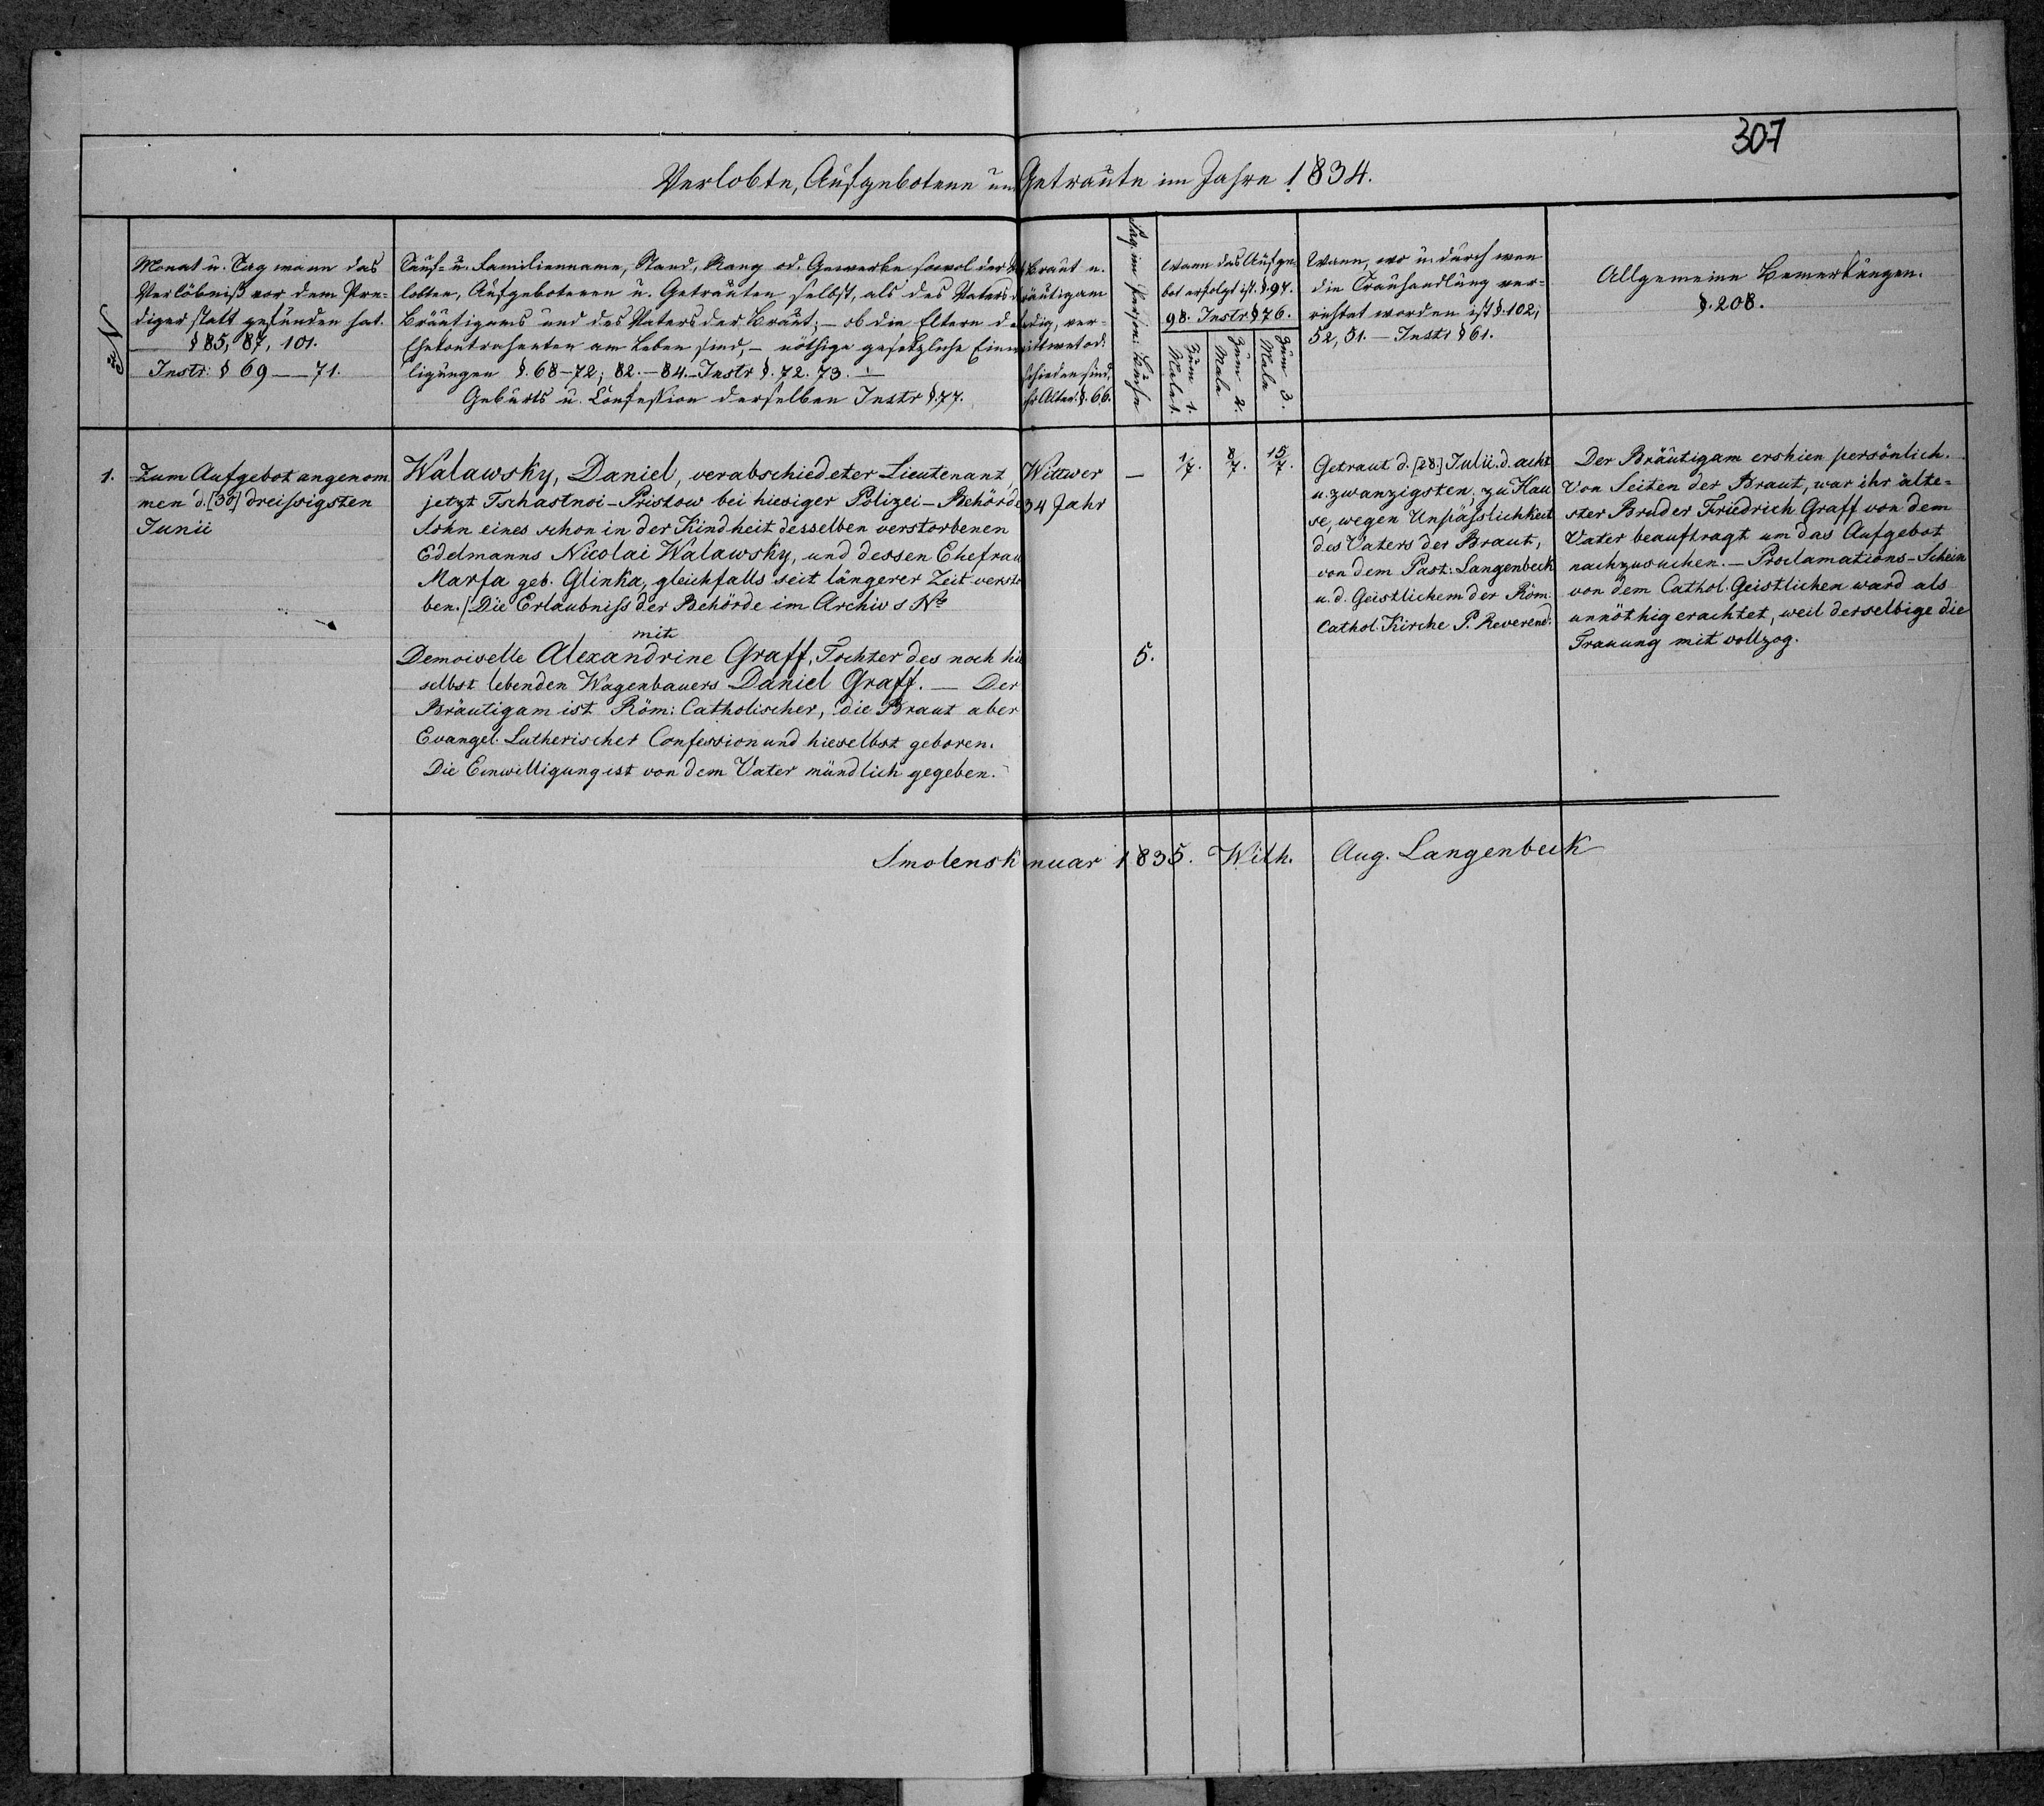 307
Verlobte, Aufgebotene un Getraute im Jahre 1834.
No
Monat u. Tag wann das
Verlöbniß vor dem Pre-
diger statt gefunden hat.
§ 85, 87, 101.
Instr: § 69 — 71.
Tauf- u. Familienname, Stand, Rang od. Gewerbe sowol der
lobten, Aufgebotenen u. Getrauten selbst, als des Vaters d
Bräutigams und des Vaters der Braut; — ob die Eltern de
Ehekontrahenten am Leben sind, — nöthige gesetzliche Einw
ligungen §. 68-72; 82.-84.- Instr §. 72. 73. —
Geburts u. Confession derselben Instr §. 77.
Braut u.
räutigam
edig, ver-
ittwet od.
schieden sind,
ihr Alter. §. 66.
Wann das Aufge-
bot erfolgt ist. §. 97.
98. Instr § 76.
Zum 1.
Male.
Zum 2.
Male
Zum 3.
Male
Wann, wo u. durch wen
die Trauhandlung ver-
richtet worden ist §. 102;
52, 51. — Instr § 61.
Allgemeine Bemerkungen.
§. 208.
1.
Zum Aufgebot angenom
men d. [30] dreissigsten
Junii
Walawsky, Daniel, verabschiedeter Lieutenant,
jetzt Tschastnoi-Pristow bei hiesiger Polizei-Behörde
Sohn eines schon in der Kindheit desselben verstorbenen
Edelmanns Nicolai Walawsky, und dessen Ehefrau
Marfa geb. Glinka, gleichfalls seit längerer Zeit versto
ben. / Die Erlaubniss der Behörde im Archiv s No
mit
Demoiselle Alexandrine Graff, Tochter des noch hie
selbst lebenden Wagenbauers Daniel Graff. — Der
Bräutigam ist Röm: Catholischer, die Braut aber
Evangel. Lutherischer Confession und hieselbst geboren.
Die Einwilligung ist von dem Vater mündlich gegeben.
Wittwer
34 Jahr
—
5.
1/7.
8/7.
15/7.
Getraut d. [28.] Julii. d. acht
u. zwanzigsten, zu Hau
se, wegen Unpässlichkeit
des Vaters der Braut,
von dem Past: Langenbeck
u. d. Geistlichem der Röm.
Cathol. Kirche P. Reverend:
Der Bräutigam ershien persönlich.
Von Seiten der Braut, war ihr älte-
ster Bruder Friedrich Graff von dem
Vater beauftragt um das Aufgebot
nachzusuchen. — Proclamations-Schein
von dem Cathol. Geistlichen ward als
unnöthig erachtet, weil derselbige die
Trauung mit vollzog.
Smolensk nuar 1835. Wilh. Aug. Langenbeck